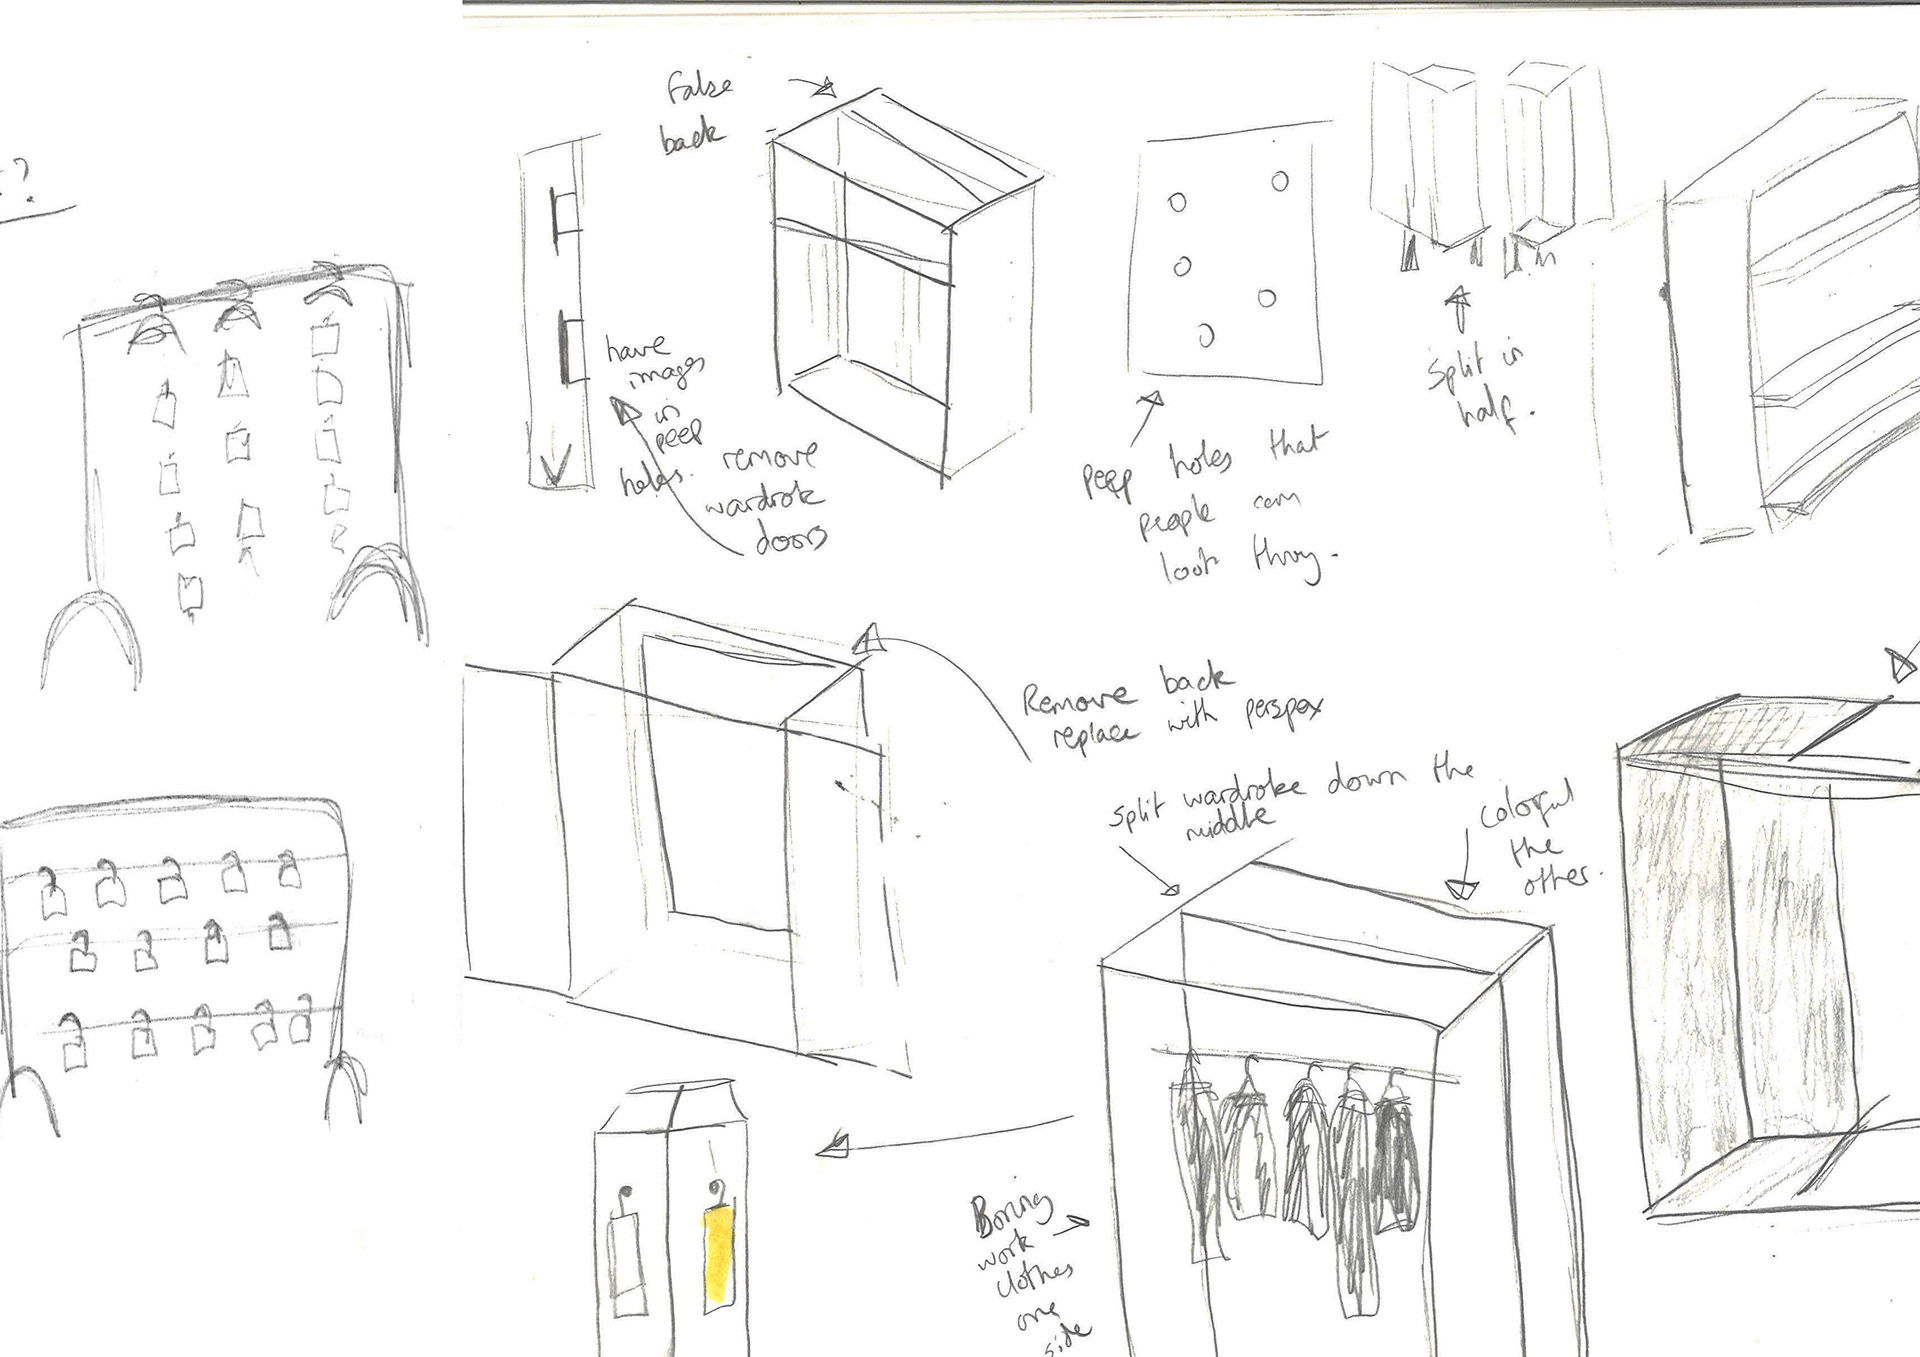 ?
False
back
have
images
in
peep
holes.
remove
wardrobe
doors
Peep holes that
people can
look throu.
Split in
half.
Remove back
replace with perspex
Split wardrobe down the
middle
Colorful
the
other.
Boring
work
clothes
one
side